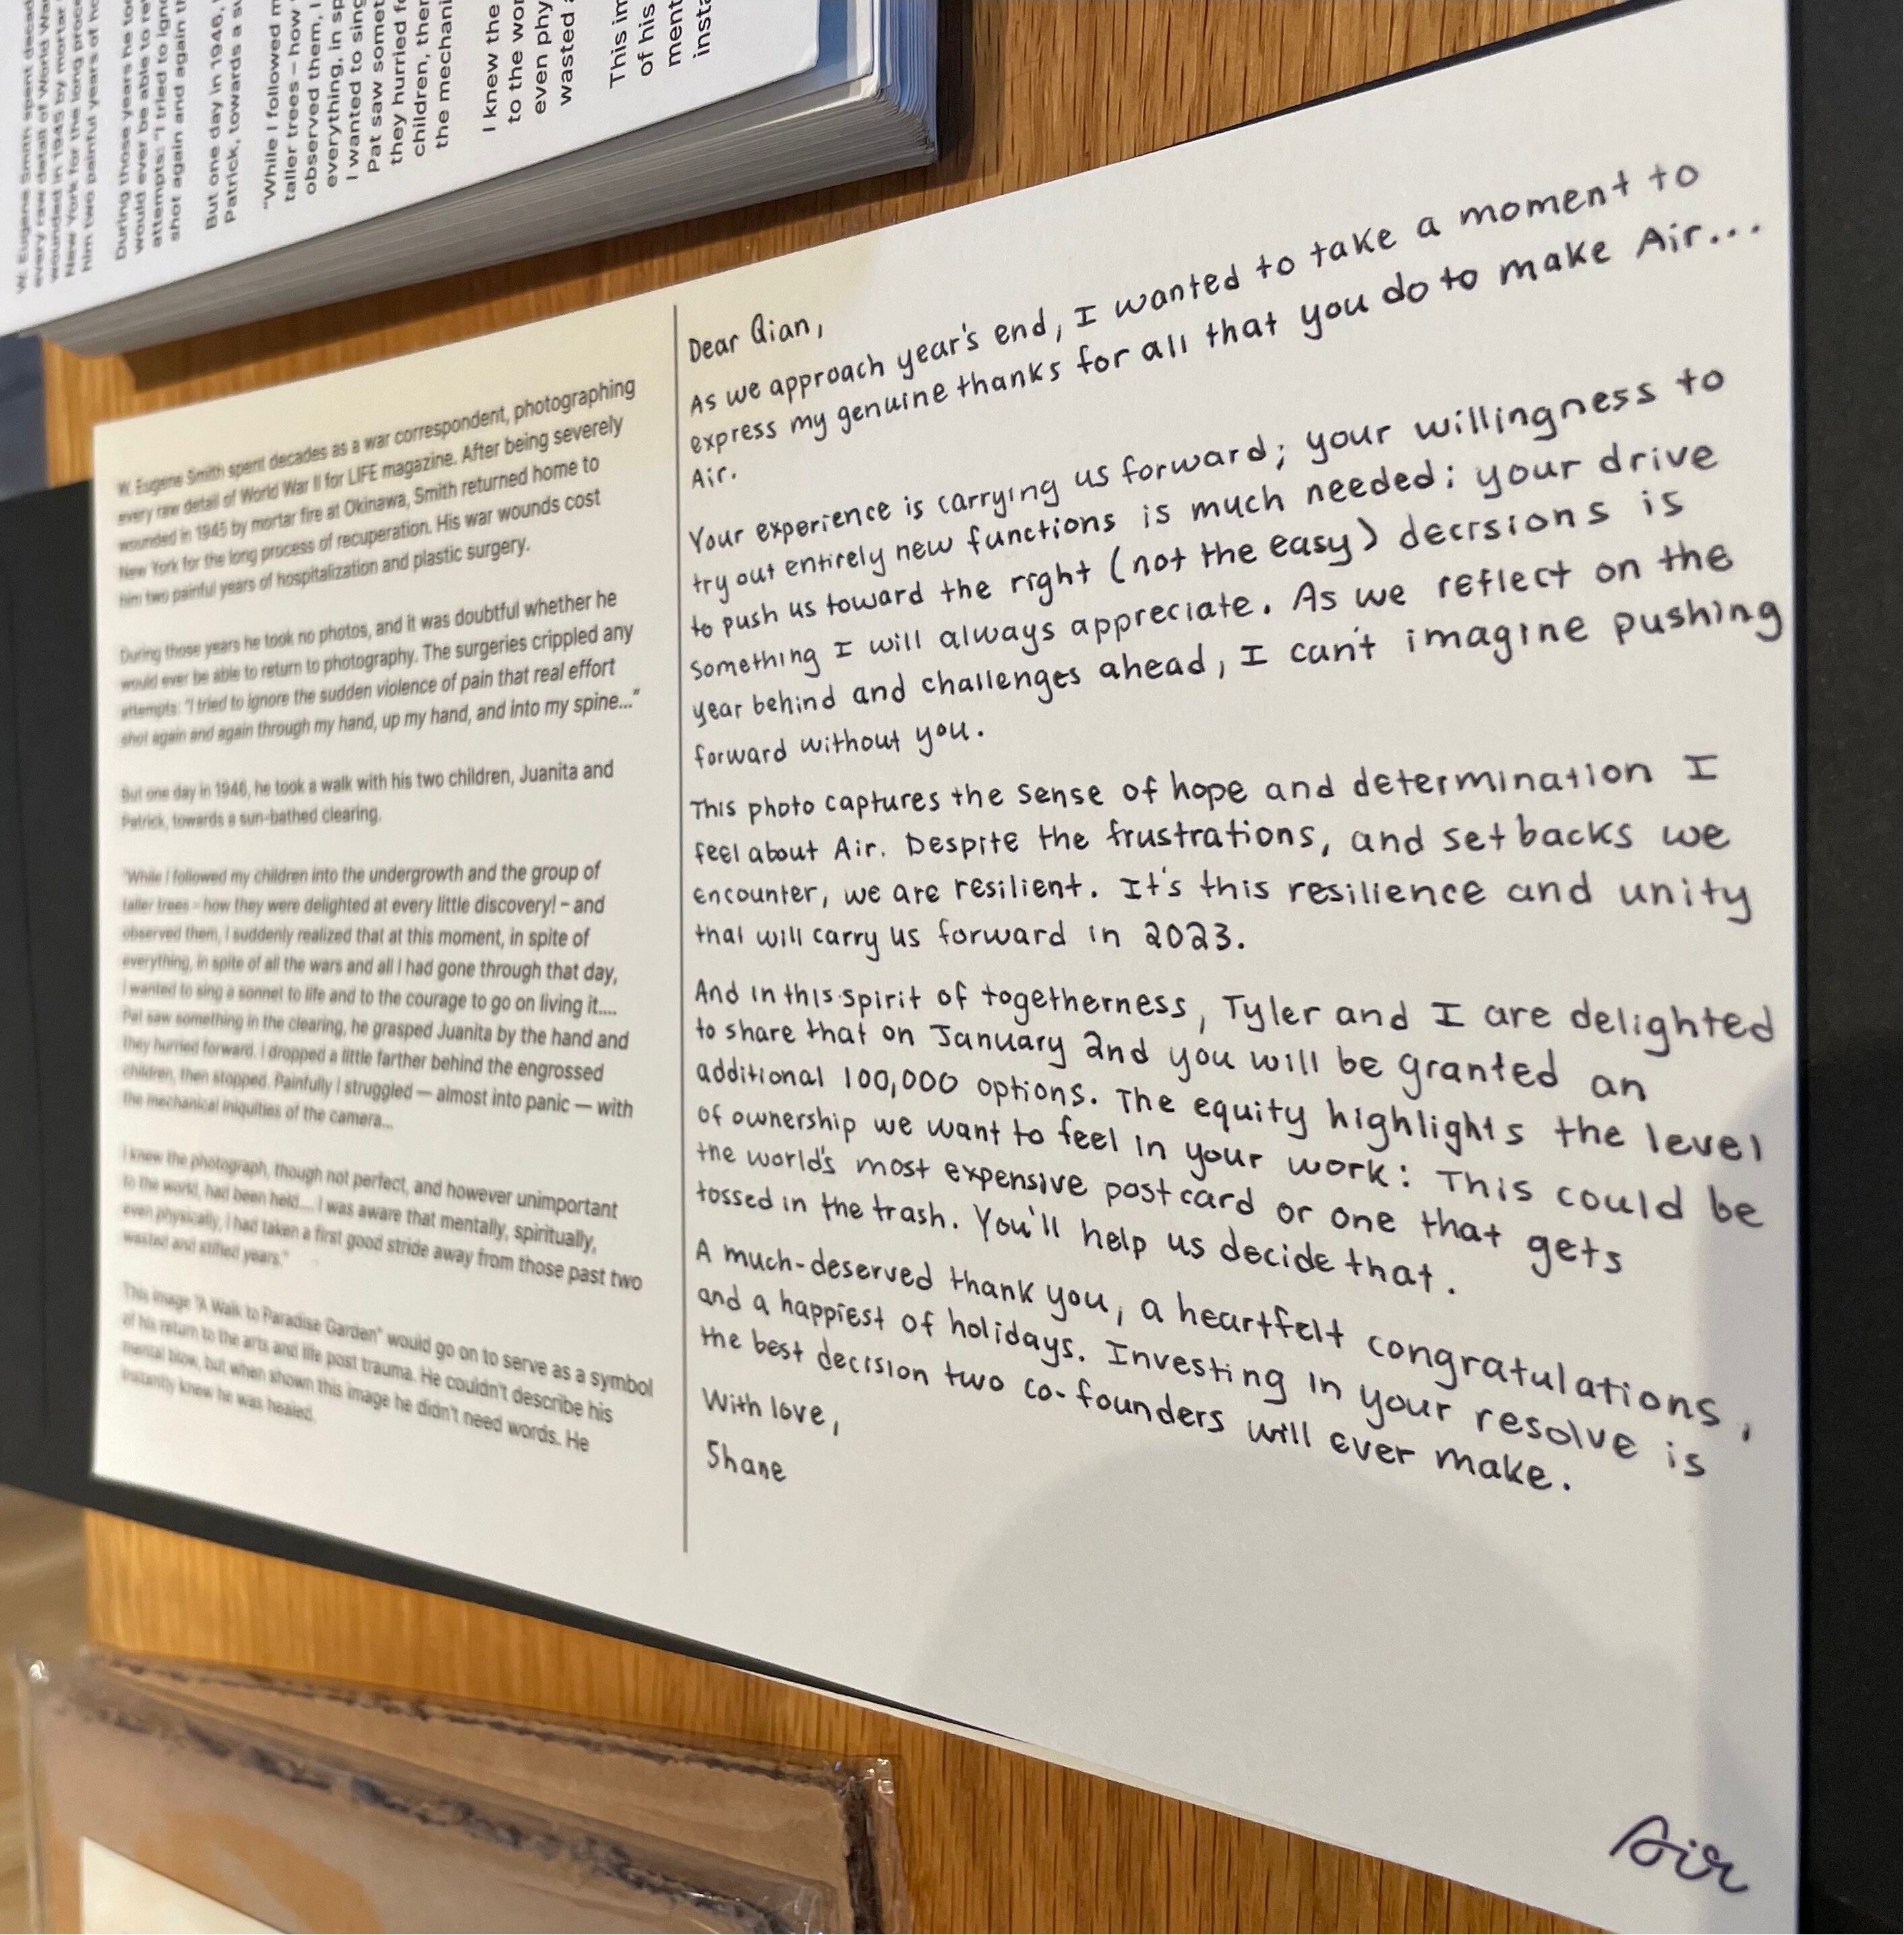 W. Eugene Smith spent decad
every raw detail of World Wa
wounded in 1945 by mortar
New York for the long proce
him two painful years of ho
During those years he too
would ever be able to re
attempts: "I tried to igno
shot again and again th
But one day in 1946,
Patrick, towards a su
"While I followed m
taller trees – how
observed them, I
everything, in sp
I wanted to sing
Pat saw somet
they hurried fo
children, then
the mechani
I knew the
to the wor
even phy
wasted
This im
of his
ment
insta
W. Eugene Smith spent decades as a war correspondent, photographing
every raw detail of World War II for LIFE magazine. After being severely
wounded in 1945 by mortar fire at Okinawa, Smith returned home to
New York for the long process of recuperation. His war wounds cost
him two painful years of hospitalization and plastic surgery.
During those years he took no photos, and it was doubtful whether he
would ever be able to return to photography. The surgeries crippled any
attempts: "I tried to ignore the sudden violence of pain that real effort
shot again and again through my hand, up my hand, and into my spine..."
But one day in 1946, he took a walk with his two children, Juanita and
Patrick, towards a sun-bathed clearing.
"While I followed my children into the undergrowth and the group of
taller trees – how they were delighted at every little discovery! – and
observed them, I suddenly realized that at this moment, in spite of
everything, in spite of all the wars and all I had gone through that day,
I wanted to sing a sonnet to life and to the courage to go on living it....
Pat saw something in the clearing, he grasped Juanita by the hand and
they hurried forward. I dropped a little farther behind the engrossed
children, then stopped. Painfully I struggled — almost into panic — with
the mechanical iniquities of the camera...
I knew the photograph, though not perfect, and however unimportant
to the world, had been held.... I was aware that mentally, spiritually,
even physically, I had taken a first good stride away from those past two
wasted and stifled years."
This image "A Walk to Paradise Garden" would go on to serve as a symbol
of his return to the arts and life post trauma. He couldn't describe his
mental blow, but when shown this image he didn't need words. He
instantly knew he was healed.
Dear Qian,
As we approach year's end, I wanted to take a moment to
express my genuine thanks for all that you do to make Air...
Air.
Your experience is carrying us forward; your willingness to
try out entirely new functions is much needed; your drive
to push us toward the right (not the easy) decisions is
something I will always appreciate. As we reflect on the
year behind and challenges ahead, I can't imagine pushing
forward without you.
This photo captures the sense of hope and determination I
feel about Air. Despite the frustrations, and setbacks we
encounter, we are resilient. It's this resilience and unity
that will carry us forward in 2023.
And in this spirit of togetherness, Tyler and I are delighted
to share that on January 2nd you will be granted an
additional 100,000 options. The equity highlights the level
of ownership we want to feel in your work: This could be
the world's most expensive postcard or one that gets
tossed in the trash. You'll help us decide that.
A much-deserved thank you, a heartfelt congratulations,
and a happiest of holidays. Investing in your resolve is
the best decision two co-founders will ever make.
With love,
Shane
Air